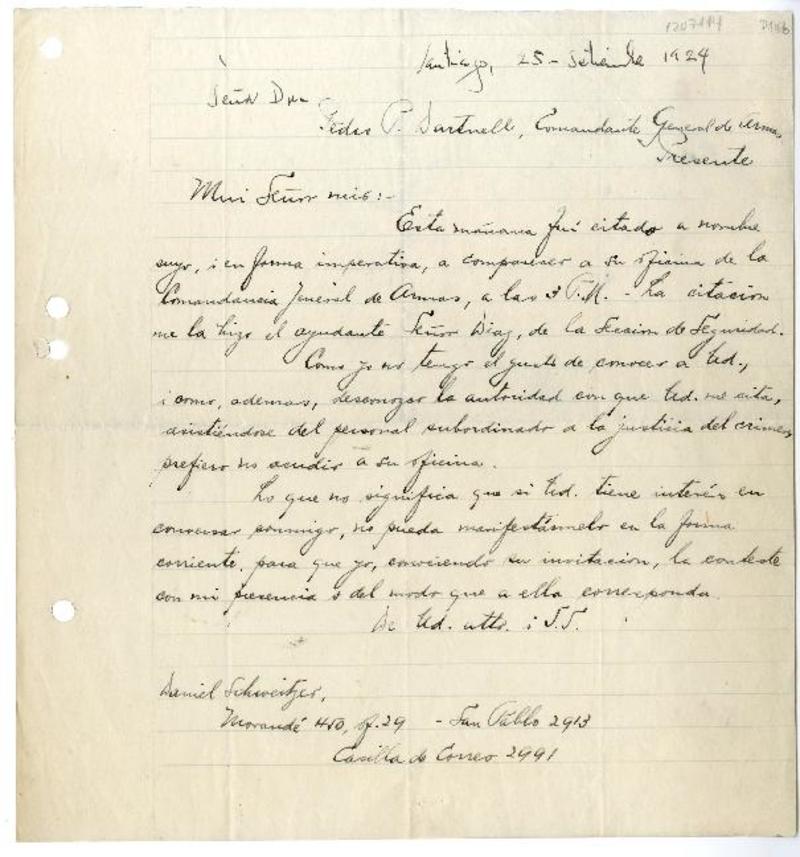 1207114 D146
Santiago, 25 - Setiembre 1924
Señor Don
Pedro P. Dartnell, Comandante General de Armas
Presente
Mui Señor mio:-
Esta mañana fuí citado a nombre
suyo, i en forma imperativa, a comparecer a su oficina de la
Comandancia Jeneral de Armas, a las 3 P.M. - La citación
me la hizo el ayudante Señor Diaz, de la Seccion de Seguridad.
Como yo no tengo el gusto de conocer a Ud.,
i como, ademas, desconozco la autoridad con que Ud. me cita,
asistiéndose del personal subordinado a la justicia del crimen,
prefiero no acudir a su oficina.
Lo que no significa que si Ud. tiene interés en
conversar conmigo, no pueda manifestármelo en la forma
corriente, para que yo, conociendo su invitacion, la conteste
con mi presencia o del modo que a ella corresponda.
De Ud. atto. i S.S.
Daniel Schweitzer,
Morandé 450, of. 29 - San Pablo 2913
Casilla de Correo 2991